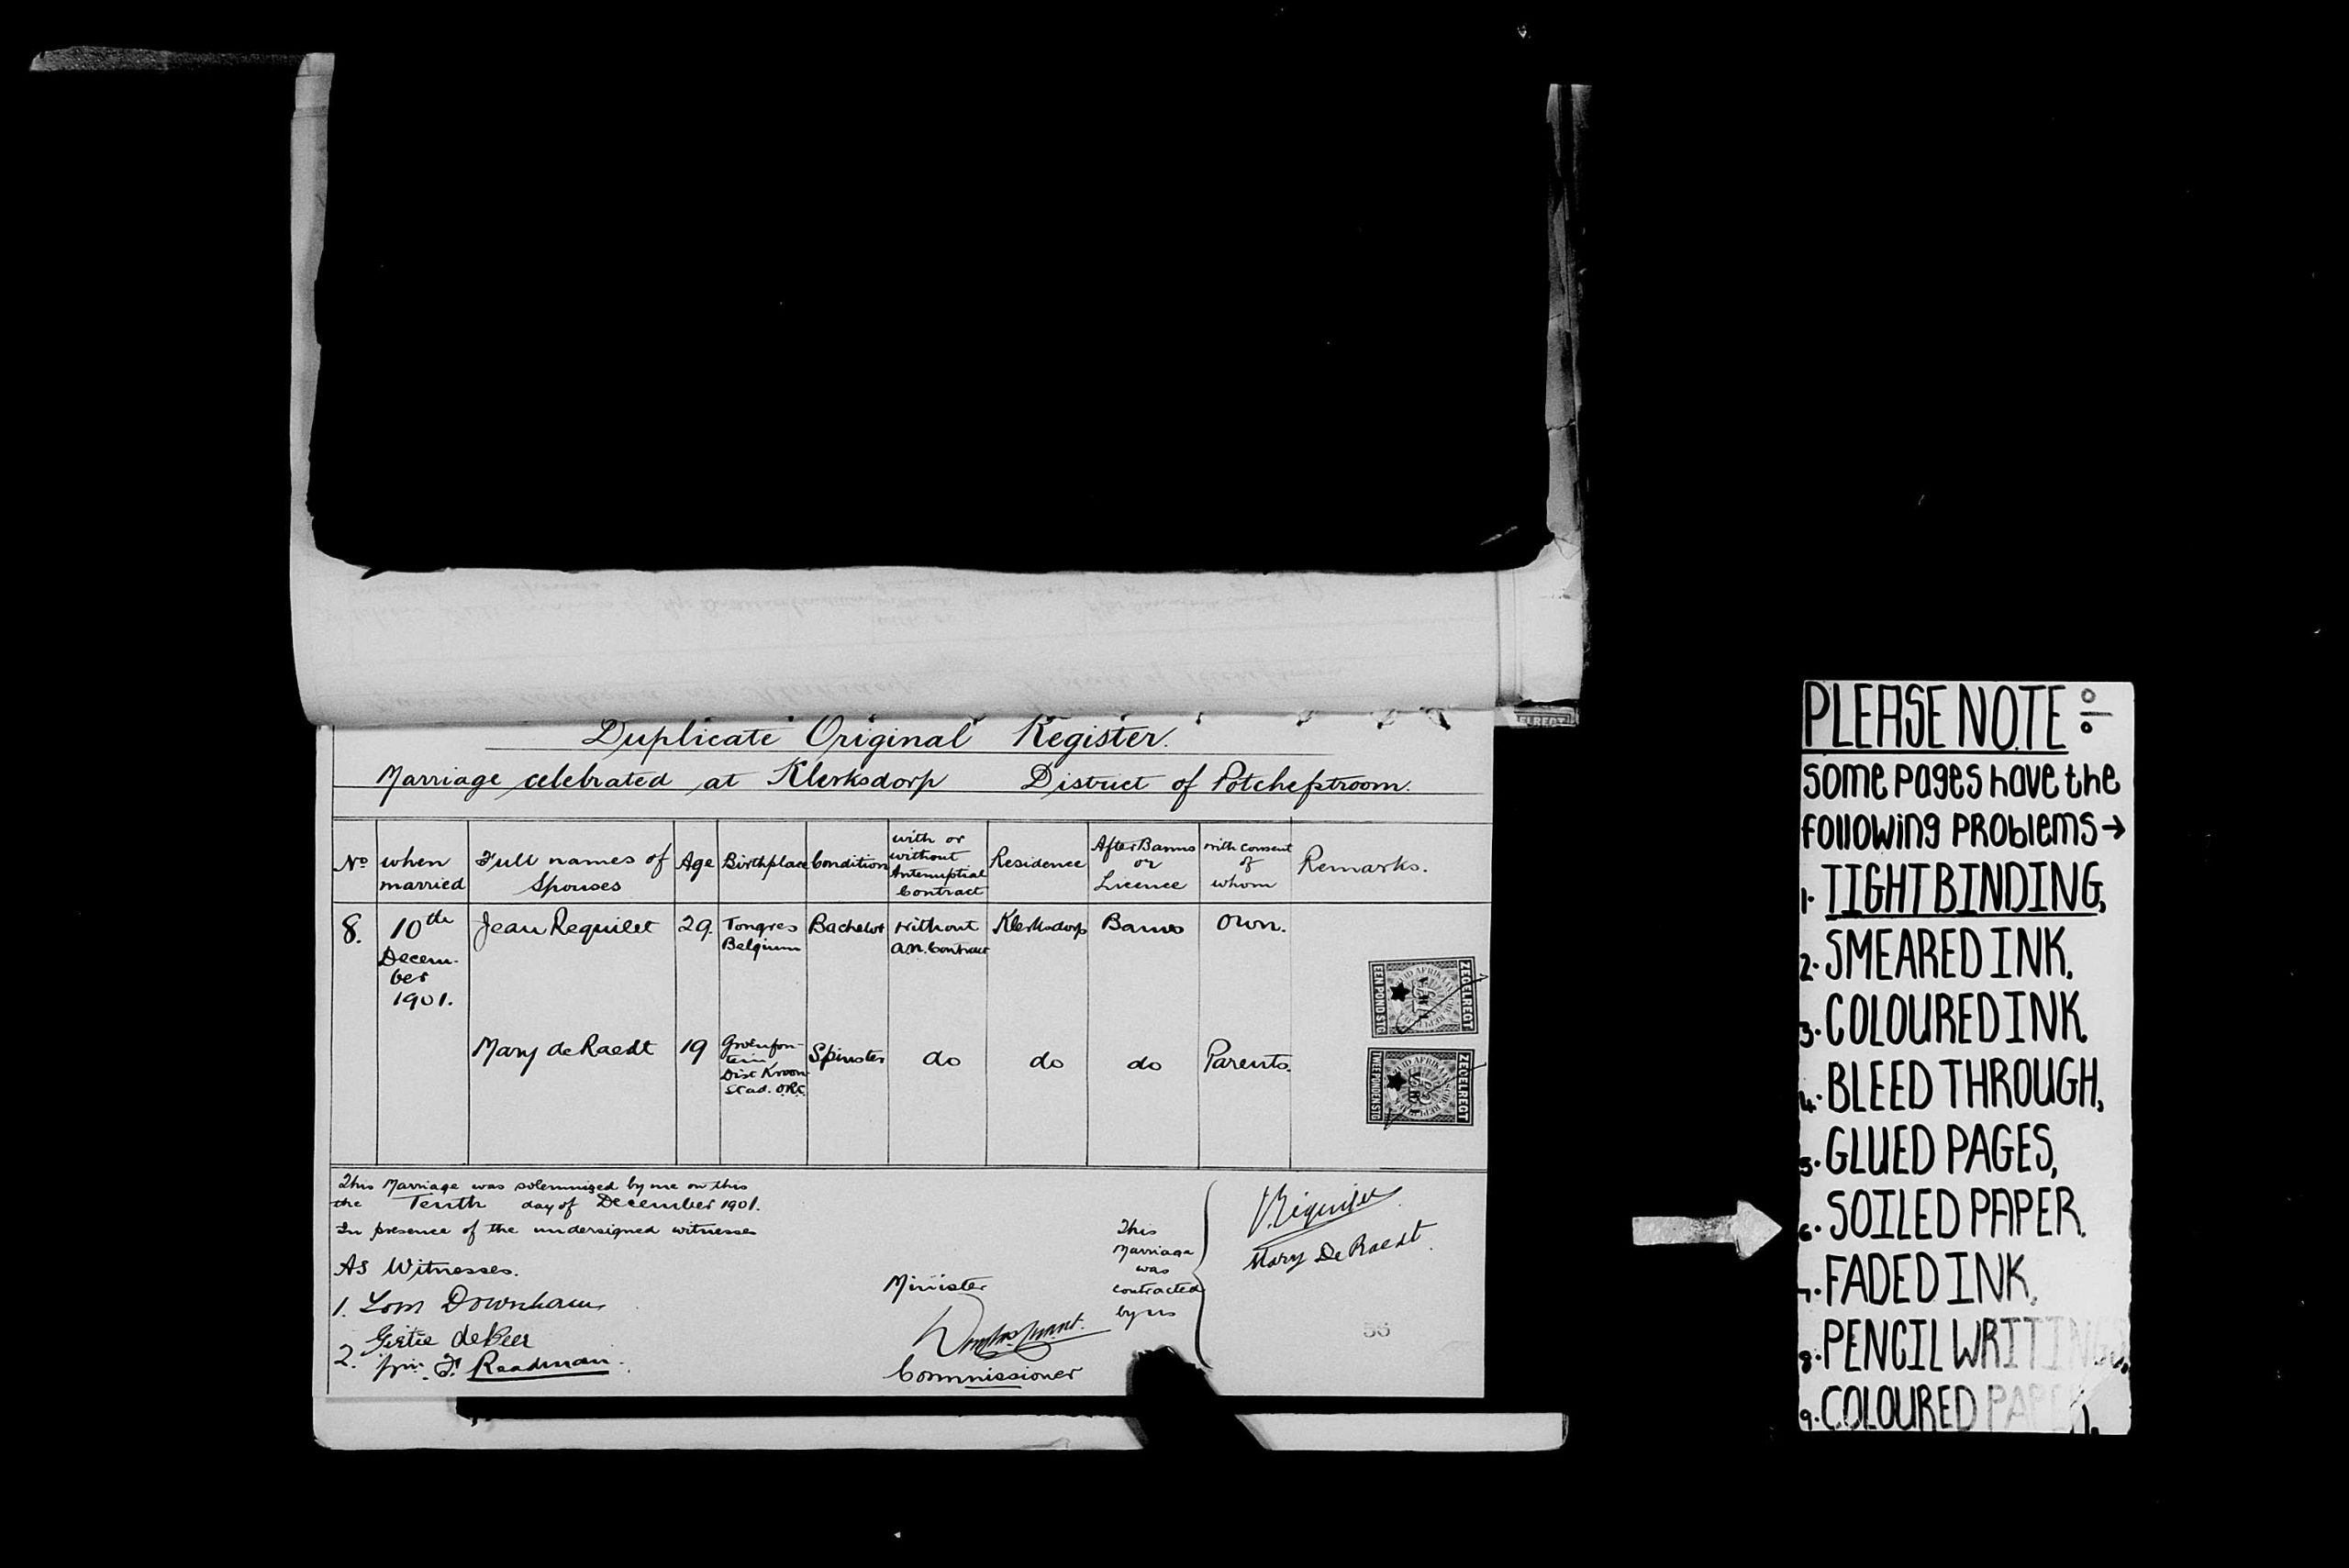 Duplicate Original Register.
Marriage celebrated at Klerksdorp District of Potchefstroom.
No when married Full names of Spouses Age Birthplace Condition with or without Antenuptial Contract Residence After Banns or Licence with consent of whom Remarks.
8. 10th December 1901. Jean Requilet 29. Tongres Belgium Bachelor Without A.N. Contract Klerksdorp Banns Own.
Mary de Raedt 19 Groenfontein Dist Kroonstad. O.R.C. Spinster do do do Parents.
ZEGELRECHT
EEN POND STG
ZEGELRECHT
TWEE PONDEN STG
This Marriage was solemnized by me on this
the Tenth day of December 1901.
In presence of the undersigned witnesses
As Witnesses.
1. Tom Downham
2. Gertie de Beer
F. Readman.
Minister
Commissioner
This
Marriage
was
contracted
by us
Mary De Raedt.
56
PLEASE NOTE :-
Some pages have the
following problems →
1. TIGHT BINDING,
2. SMEARED INK,
3. COLOURED INK,
4. BLEED THROUGH,
5. GLUED PAGES,
6. SOILED PAPER,
7. FADED INK,
8. PENCIL WRITINGS,
9. COLOURED PAPER.